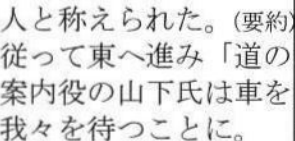 人と称えられた。(要約)
従って東へ進み「道の
案内役の山下氏は車を
我々を待つことに。